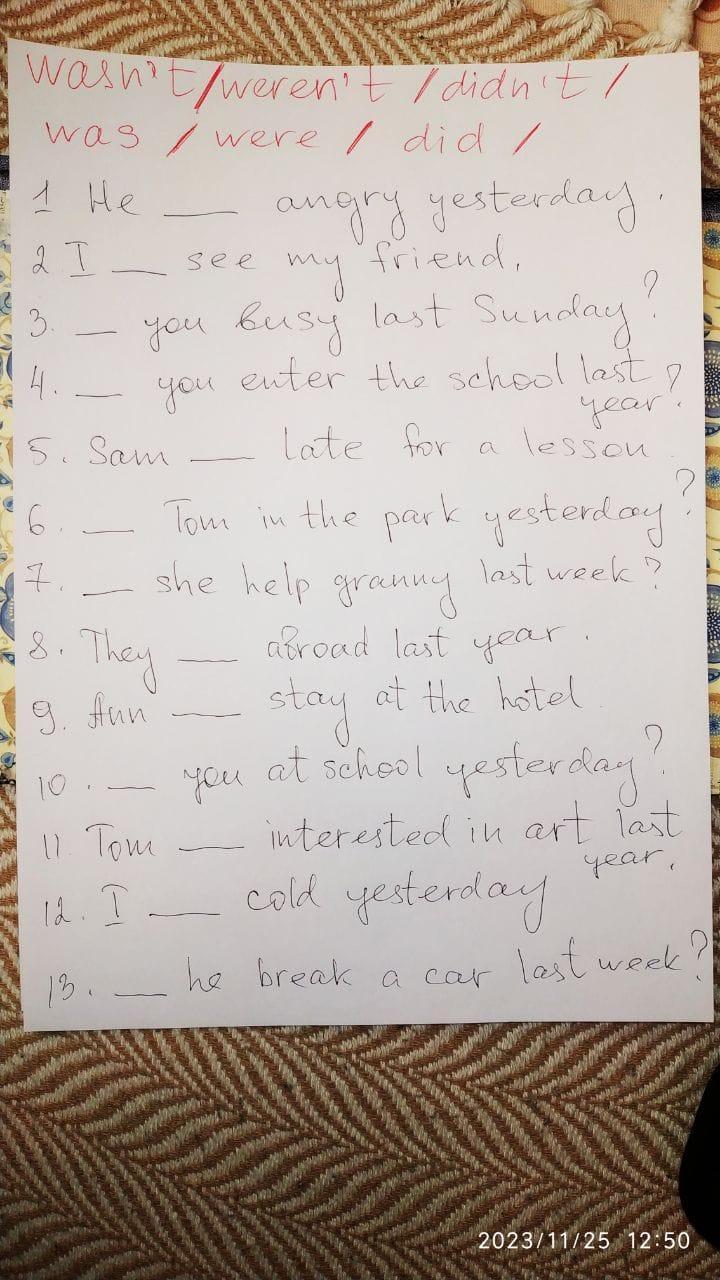 wasn't/weren't / didn't /
was / were / did /
1 He ___ angry yesterday.
2 I ___ see my friend.
3. __ you busy last Sunday?
4. __ you enter the school last
year?
5. Sam ___ late for a lesson
6. ___ Tom in the park yesterday?
7. ___ she help granny last week?
8. They ___ abroad last year.
9. Ann ___ stay at the hotel
10. ___ you at school yesterday?
11. Tom ___ interested in art last
year.
12. I ___ cold yesterday
13. ___ he break a car last week?
2023/11/25 12:50